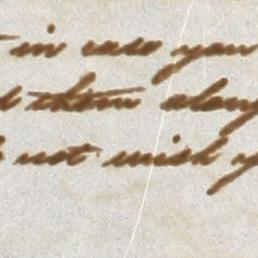 in case you
them along
not wish